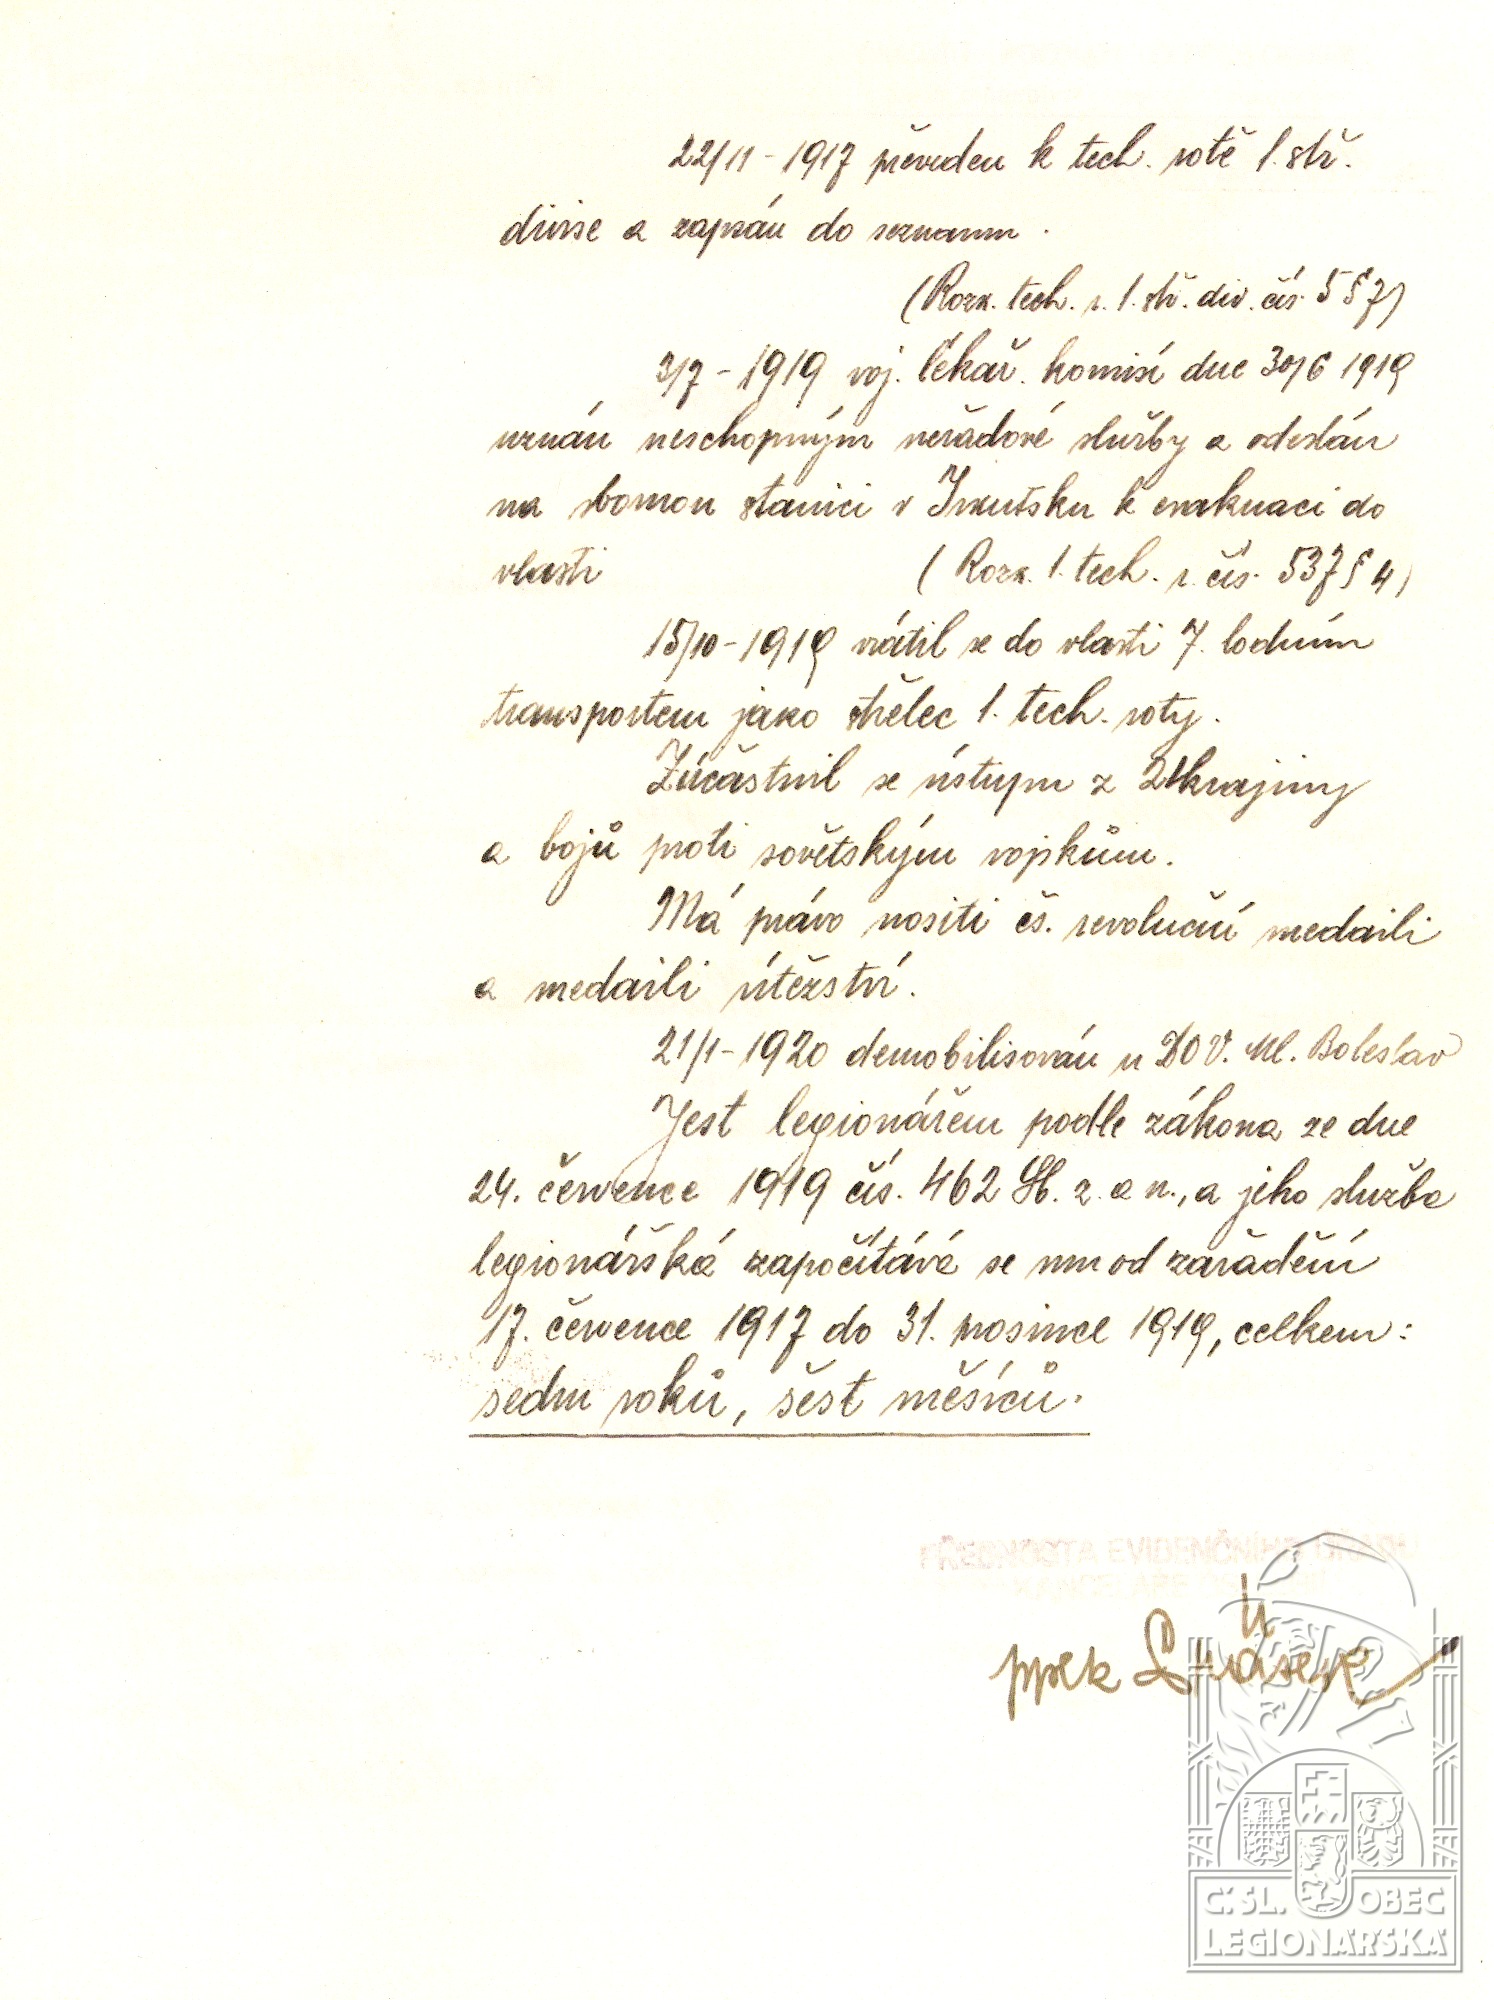 22/11 - 1917 převeden k tech. rotě 1. stř.
divise a zapsán do seznamu.
(Rozk. tech. r. 1. stř. div. čís. 5 § 7)
3/7 - 1919 voj. lékař. komisí dne 30/6 1919
uznán neschopným neřadové služby a odeslán
na sbornou stanici v Irkutsku k evakuaci do
vlasti (Rozk. 1. tech. r. čís. 537 § 4)
15/10 - 1919 vrátil se do vlasti 7. lodním
transportem jako střelec 1. tech. roty.
Zúčastnil se ústupu z Ukrajiny
a bojů proti sovětským vojskům.
Má právo nositi čs. revoluční medaili
a medaili vítězství.
21/1 - 1920 demobilisován u DOV. Ml. Boleslav
Jest legionářem podle zákona ze dne
24. července 1919 čís. 462 Sb. z. a n., a jeho služba
legionářská započítává se mu od zařadění
17. července 1917 do 31. prosince 1919, celkem:
sedm roků, šest měsíců.
PŘEDNOSTA EVIDENČNÍHO ÚŘADU
pplk
Č.SL. OBEC
LEGIONÁŘSKÁ